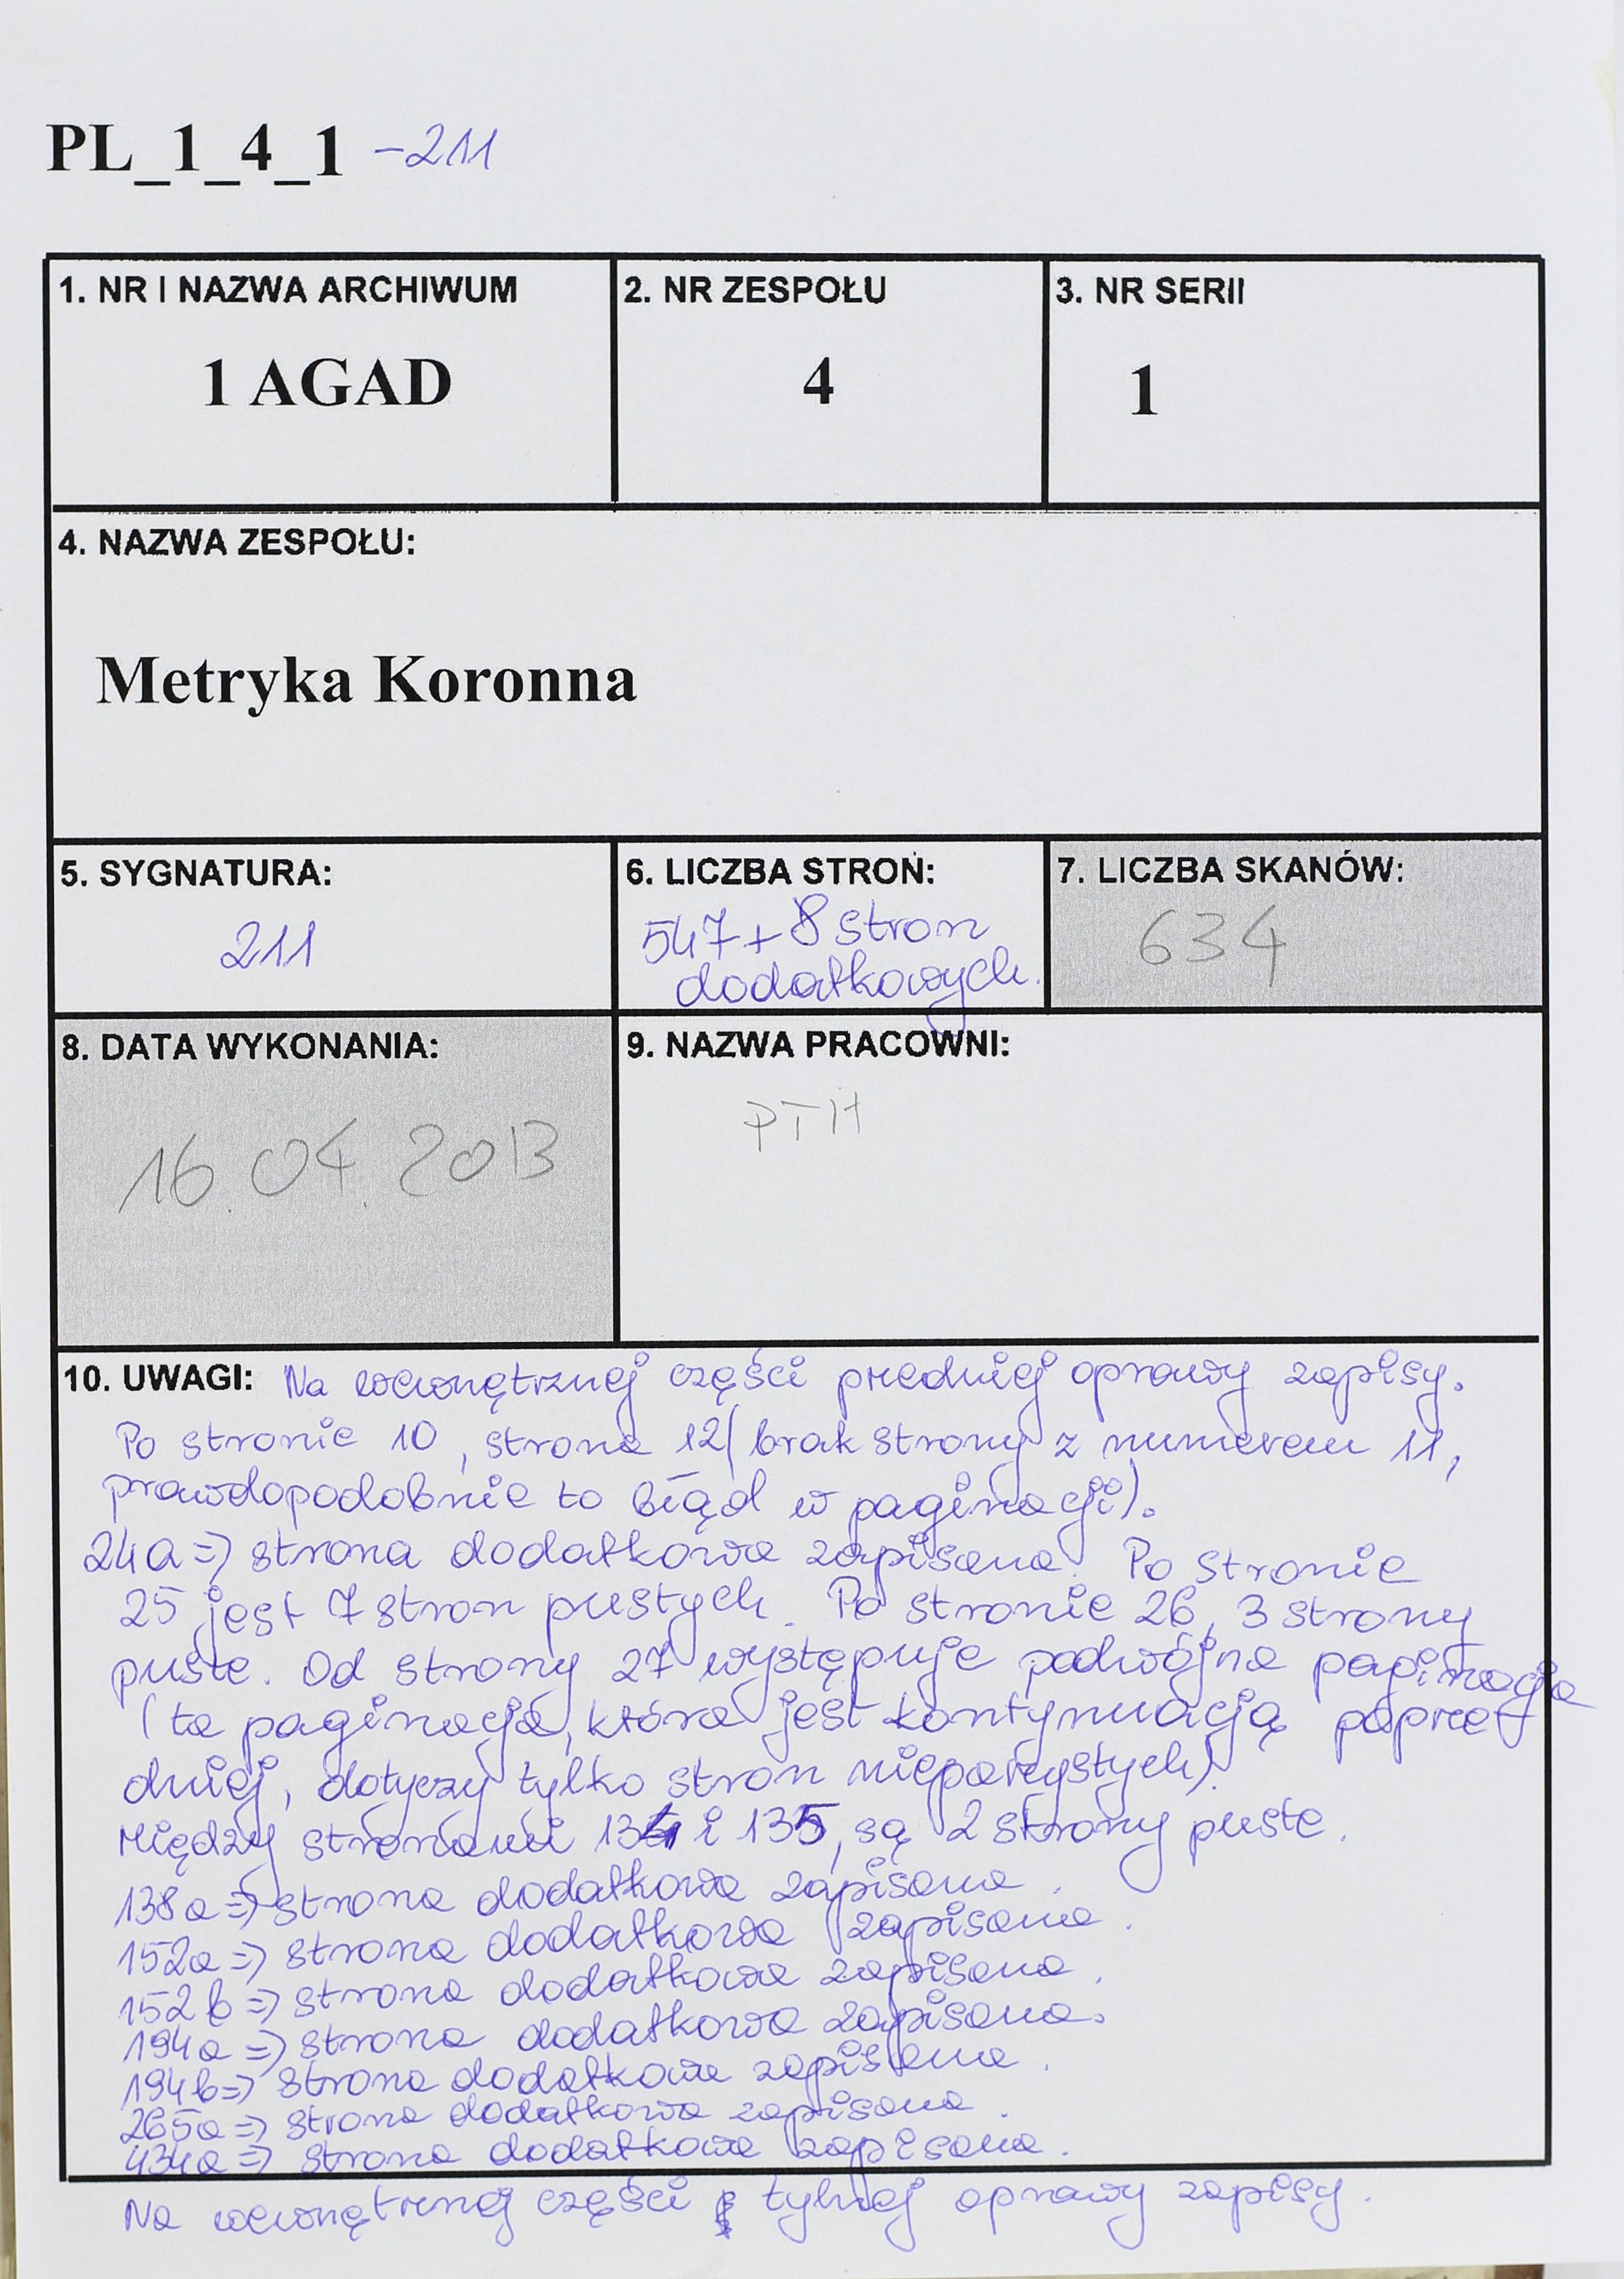 PL_1_4_1 -211
1. NR I NAZWA ARCHIWUM
1 AGAD
2. NR ZESPOŁU
4
3. NR SERII
1
4. NAZWA ZESPOŁU:
Metryka Koronna
5. SYGNATURA:
211
6. LICZBA STRON:
547+8 stron
dodatkowych.
7. LICZBA SKANÓW:
634
8. DATA WYKONANIA:
16.04.2013
9. NAZWA PRACOWNI:
PTH
10. UWAGI: Na wewnętrznej części przedniej oprawy zapisy.
Po stronie 10, strona 12 (brak strony z numerem 11,
prawdopodobnie to błąd w paginacji).
24a => strona dodatkowa zapisana. Po stronie
25 jest 7 stron pustych. Po stronie 26, 3 strony
puste. Od strony 27 występuje podwójna paginacja
(ta paginacja, która jest kontynuacją poprzed
dniej, dotyczy tylko stron nieparzystych).
Między stronami 134 i 135, są 2 strony puste.
138a => strona dodatkowa zapisana.
152a => strona dodatkowa zapisana.
152b => strona dodatkowa zapisana.
194a => strona dodatkowa zapisana.
194b => strona dodatkowa zapisana.
265a => strona dodatkowa zapisana.
434a => strona dodatkowa zapisana.
Na wewnętrznej części tylnej oprawy zapisy.